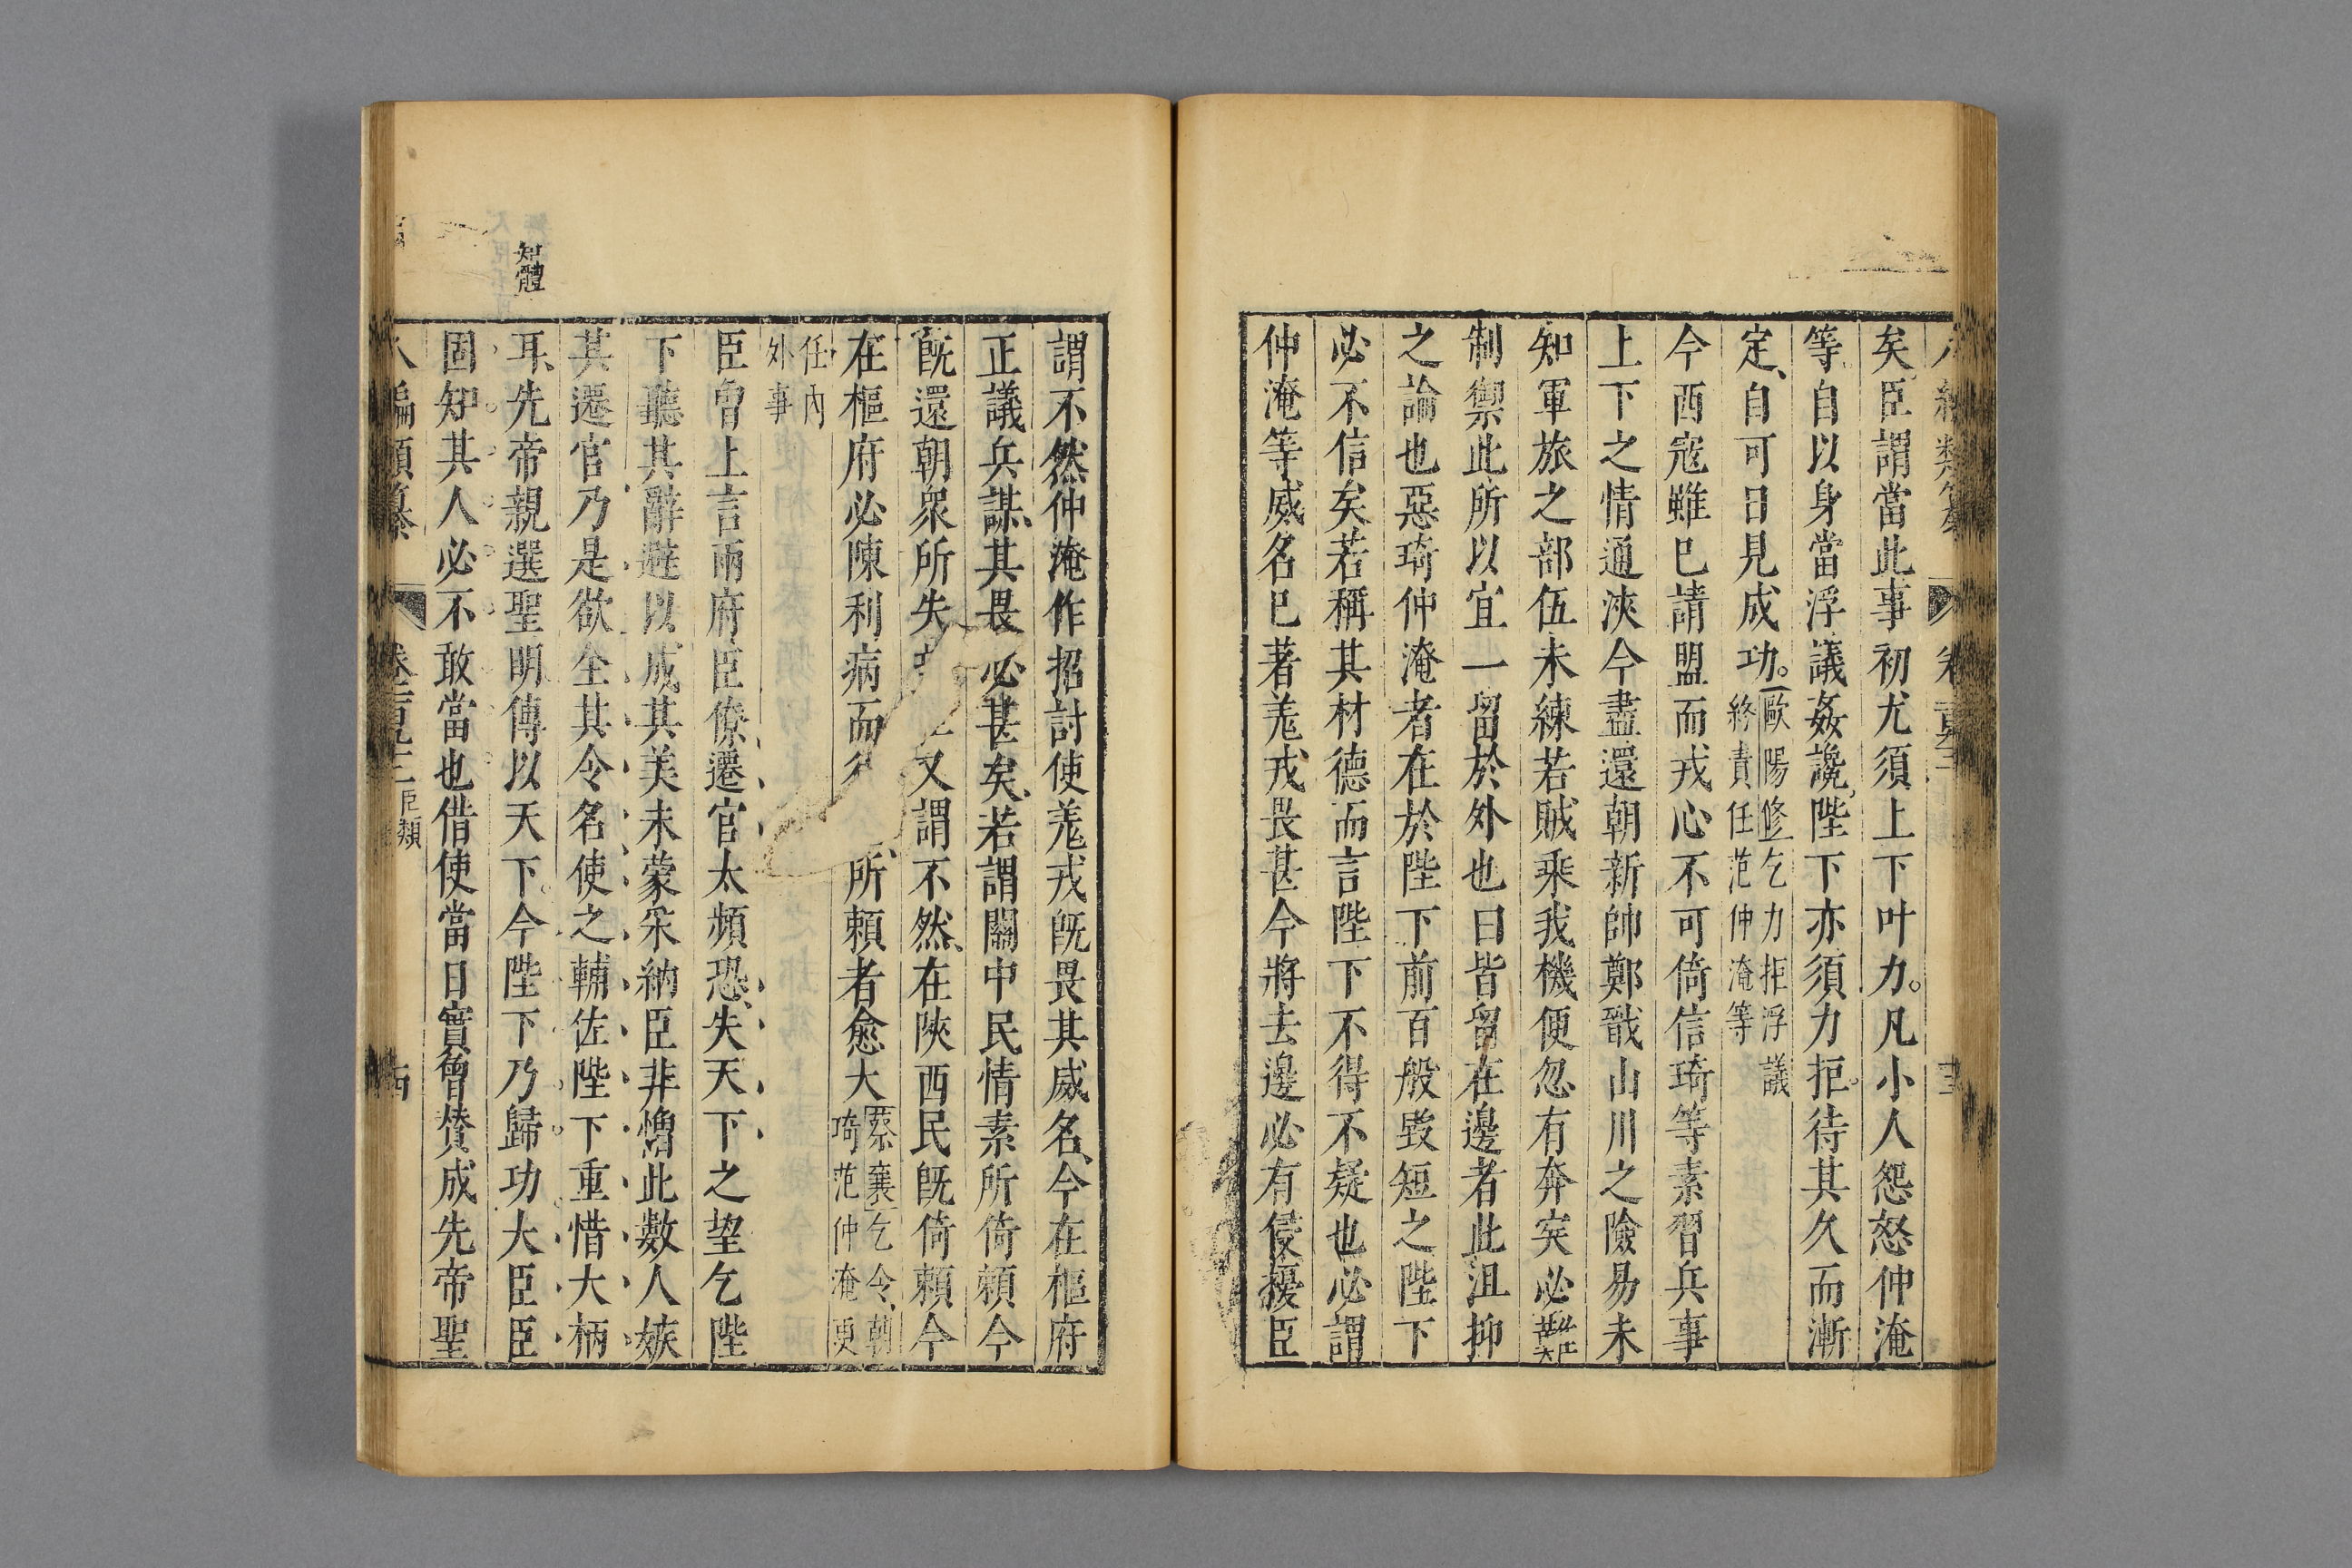 矣臣謂當此事初尤須上下叶力。凡小人怨怒仲淹
等自以身當浮議姦讒、陛下亦須力拒。待其久而漸
定、自可日見成功。歐陽修乞力拒浮議
終責任范仲淹等
今西寇雖已請盟而戎心不可倚信琦等素習兵事
上下之情通浹今盡還朝新帥鄭戩山川之險易未
知軍旅之部伍未練若賊乘我機便忽有奔突必
制禦此所以宜一留於外也曰皆留在邊者此沮抑
之論也惡琦仲淹者在於陛下前百般毀短之陛下
必不信矣若稱其材德而言陛下不得不疑也必謂
仲淹等威名已著羌戎、畏甚今將去邊必有侵擾臣
謂不然仲淹作招討使羌戎既畏其威名、今在樞府
正議兵謀、其畏必甚矣、若謂關中民情素所倚賴今
既還朝衆所失又謂不然、在陝西民既倚賴今
在樞府必陳利病而所賴者愈大蔡襄乞令韓
琦范仲淹更
任內
外事
知體
臣曾上言兩府臣僚遷官太頻恐、失天下之望乞陛
下聽其辭避以成其美未蒙采納臣非憎此數人嫉
其遷官乃是欲全其令名使之輔佐陛下重惜大柄
耳、先帝親選聖明傳以天下。今陛下乃歸功大臣臣
固知其人必不敢當也借使當日實曾贊成先帝聖
八編類纂 卷百至二 臣類 西